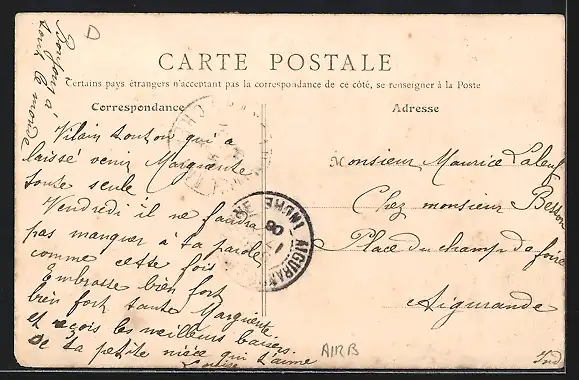 D
Bonjour à
tout le monde
CARTE POSTALE
Certains pays étrangers n'acceptant pas la correspondance de ce côté, se renseigner à la Poste
Correspondance
Adresse
Vilain tonton qui a
laissé venir Margueite
toute seule
Vendredi il ne faudra
pas manquer à ta parole
comme cette fois
Embrasse bien fort
bien fort tante Margueite
et reçois les meilleurs baisers.
de ta petite nièce qui t'aime
Louise
Monsieur Maurice
Chez monsieur Besson
Place du champ de foire
Aigurande
Ind
AIGURANDE
INDRE
08
AIRB